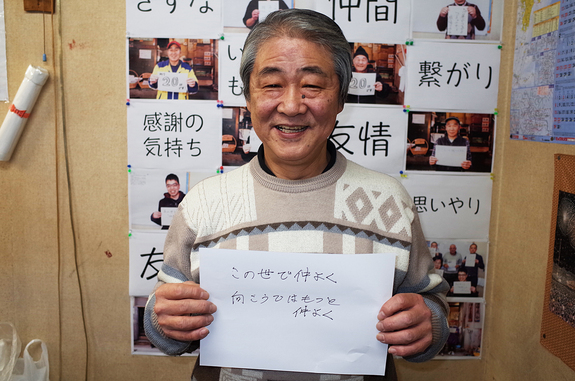 きずな
仲間
繋がり
感謝の
気持ち
友情
思いやり
この世で仲よく
向こうではもっと
仲よく